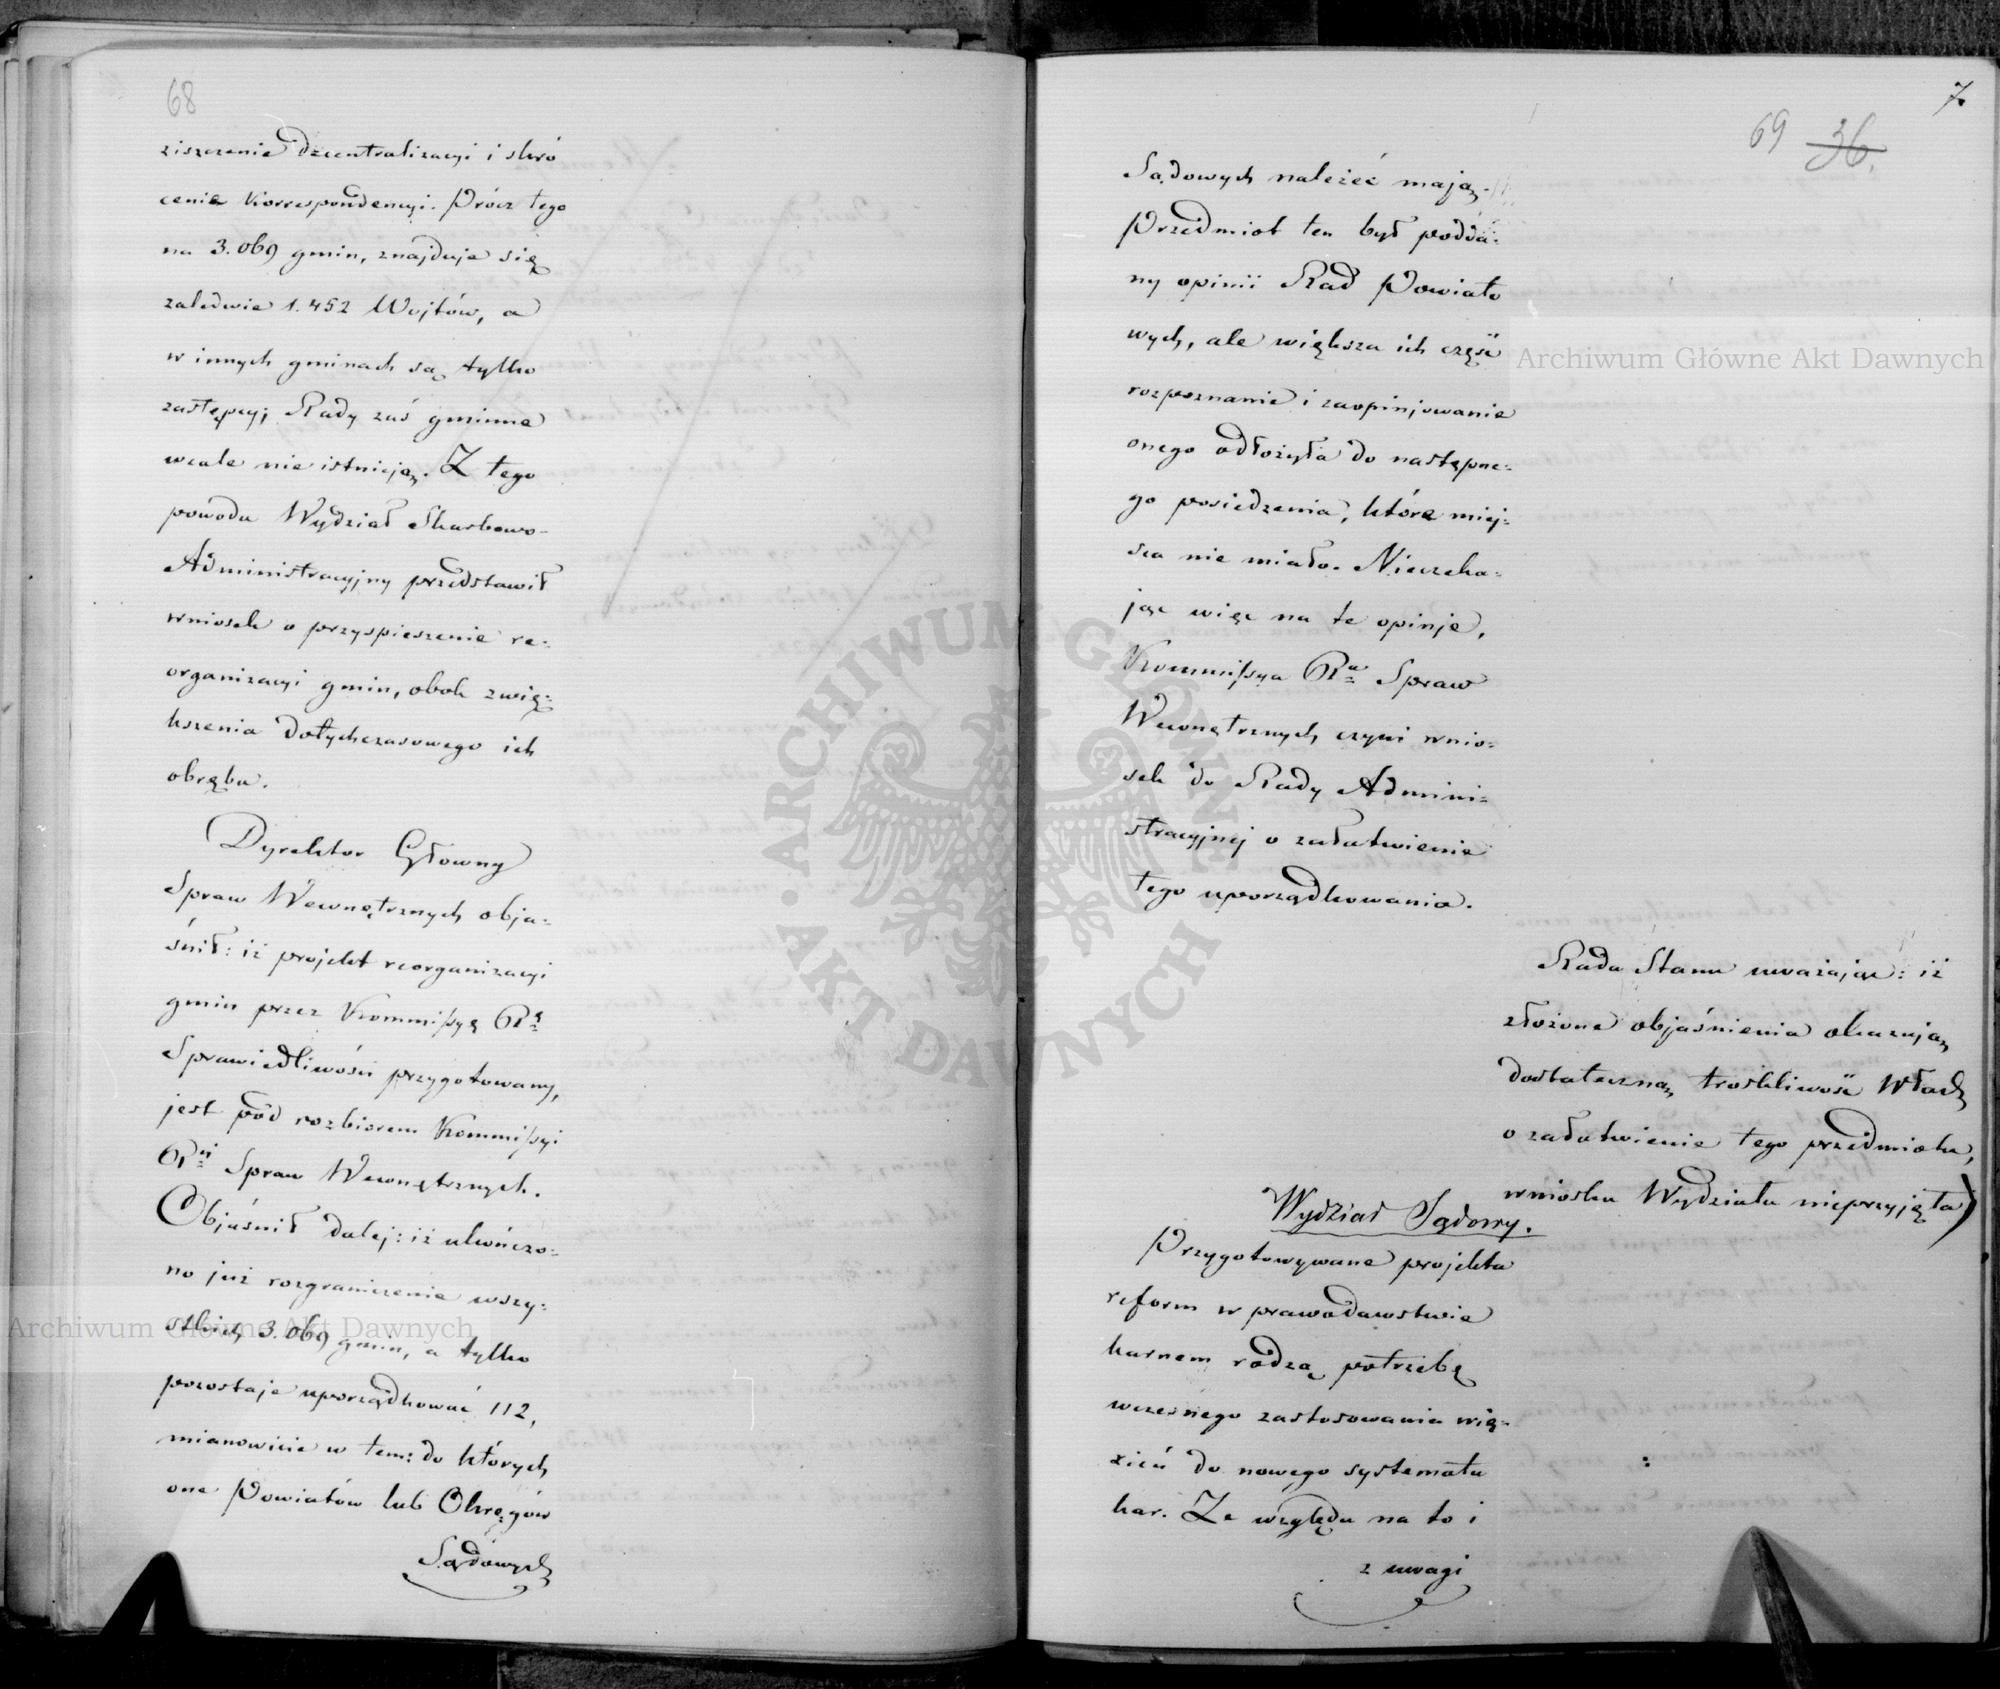 68
ziszczenie decentralizacyi i skró
cenie Korrespondencyi. Prócz tego
na 3.069 gmin, znajduje się
zaledwie 1.452 Wojtów, a
w innych gminach są tylko
zastępcy; Rady zaś gminne
wcale nie istnieją. Z tego
powodu Wydział Skarbowo-
Administracyjny przedstawił
wniosek o przyspieszenie re:
organizacyi gmin, obok zwię:
kszenia dotychczasowego ich
obrębu.
Dyrektor Główny
Spraw Wewnętrznych obja:
śnił: iż projekt reorganizacyi
gmin przez Kommissyę Rę
Sprawiedliwości przygotowany,
jest pod rozbiorem Kommissyi
Rii Spraw Wewnętrznych.
Objaśnił dalej: iż ukończo:
no już rozgraniczenie wszy:
stkich 3.069 gmin, a tylko
pozostaje uporządkować 112,
mianowicie w tem: do których
one Powiatów lub Okręgów
Sądowych
7.
69 36.
Sądowych należéć mają.
Przedmiot ten był podda:
ny opinii Rad Powiato
wych, ale większa ich część
rozpoznanie i zaopinjowanie
onego odłożyła do następne:
go posiedzenia, które miej:
sca nie miało. Nieczeka:
jąc więc na te opinje,
Kommissya Ra Spraw
Wewnętrznych czyni wnio:
sek do Rady Admini:
stracyjnej o załatwienie
tego uporządkowania.
Rada Stanu uważając: iż
złożone objaśnienia okazują
dostateczną troskliwość Władz
o załatwienie tego przedmiotu,
wniosku Wydziału nieprzyjęła)
Wydział Sądowy.
Przygotowywane projekta
reform w prawodawstwie
karnem rodzą potrzebę
wczesnego zastosowania wię:
zień do nowego systematu
kar. Ze względu na to i
z uwagi
Archiwum Główne Akt Dawnych
Archiwum Główne Akt Dawnych
ARCHIWUM GŁÓWNE
AKT DAWNYCH